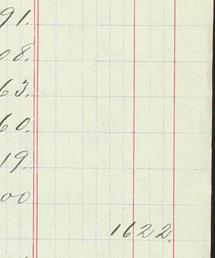 91.
08.
63.
60.
19.
00
1622.